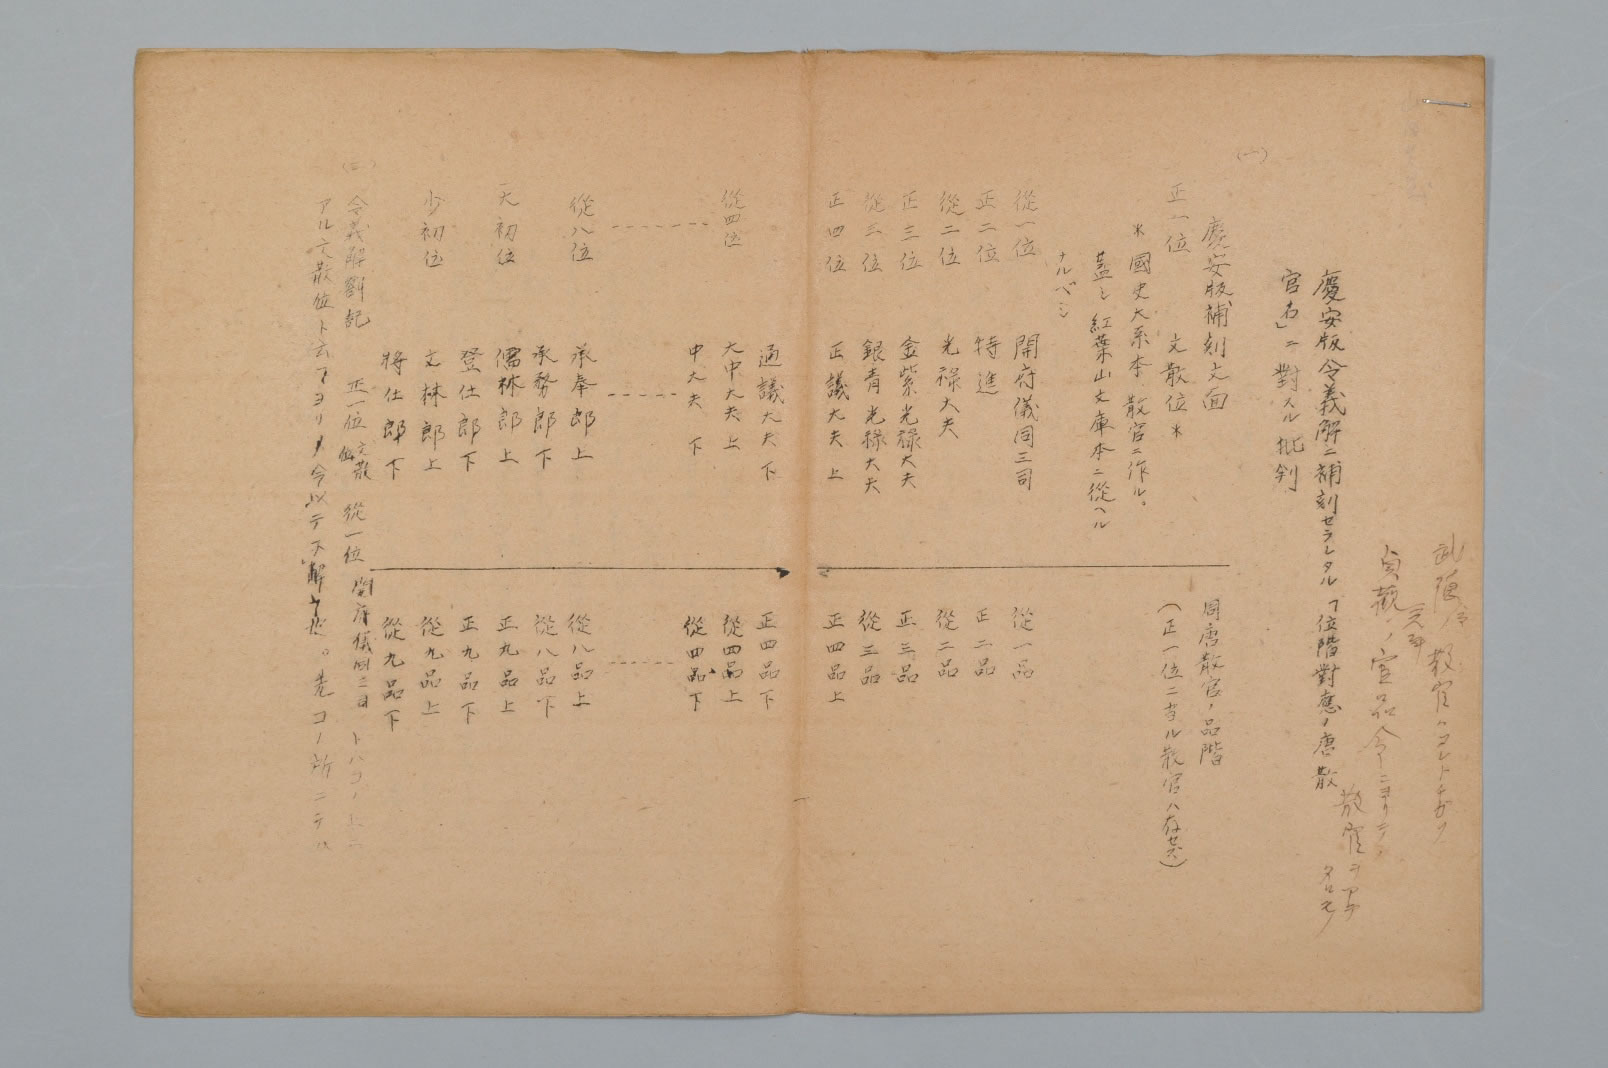 武德令ノ散官ハコレトチガフ
貞觀ノ官品令ニヨリテ
元年
散官ヲアテ
タルモノ
慶安版令義解ニ補刻セラレタル「位階對應ノ唐散
官名」ニ對スル批判
(一)
慶安版補刻文面
同唐散官ノ品階
正一位 文散位*
(正一位ニ当ル散官ハ存セズ)
*國史大系本、散官ニ作ル。
蓋シ紅葉山文庫本ニ從ヘル
ナルベシ
從一位 開府儀同三司 從一品
正二位 特進 正二品
從二位 光祿大夫 從二品
正三位 金紫光祿大夫 正三品
從三位 銀青光祿大夫 從三品
正四位 正議大夫上 正四品上
通議大夫下 正四品下
從四位 大中大夫上 從四品上
中大夫下 從四品下
從八位 承奉郎上 從八品上
承務郎下 從八品下
大初位 儒林郎上 正九品上
登仕郎下 正九品下
少初位 文林郎上 從九品上
將仕郎下 從九品下
(二)
令義解劄記 正一位 文散位 從一位 開府儀同三司 トハコノ
アル文散位ト云フヨリ 今以テ下解 也。先コノ所ニテハ